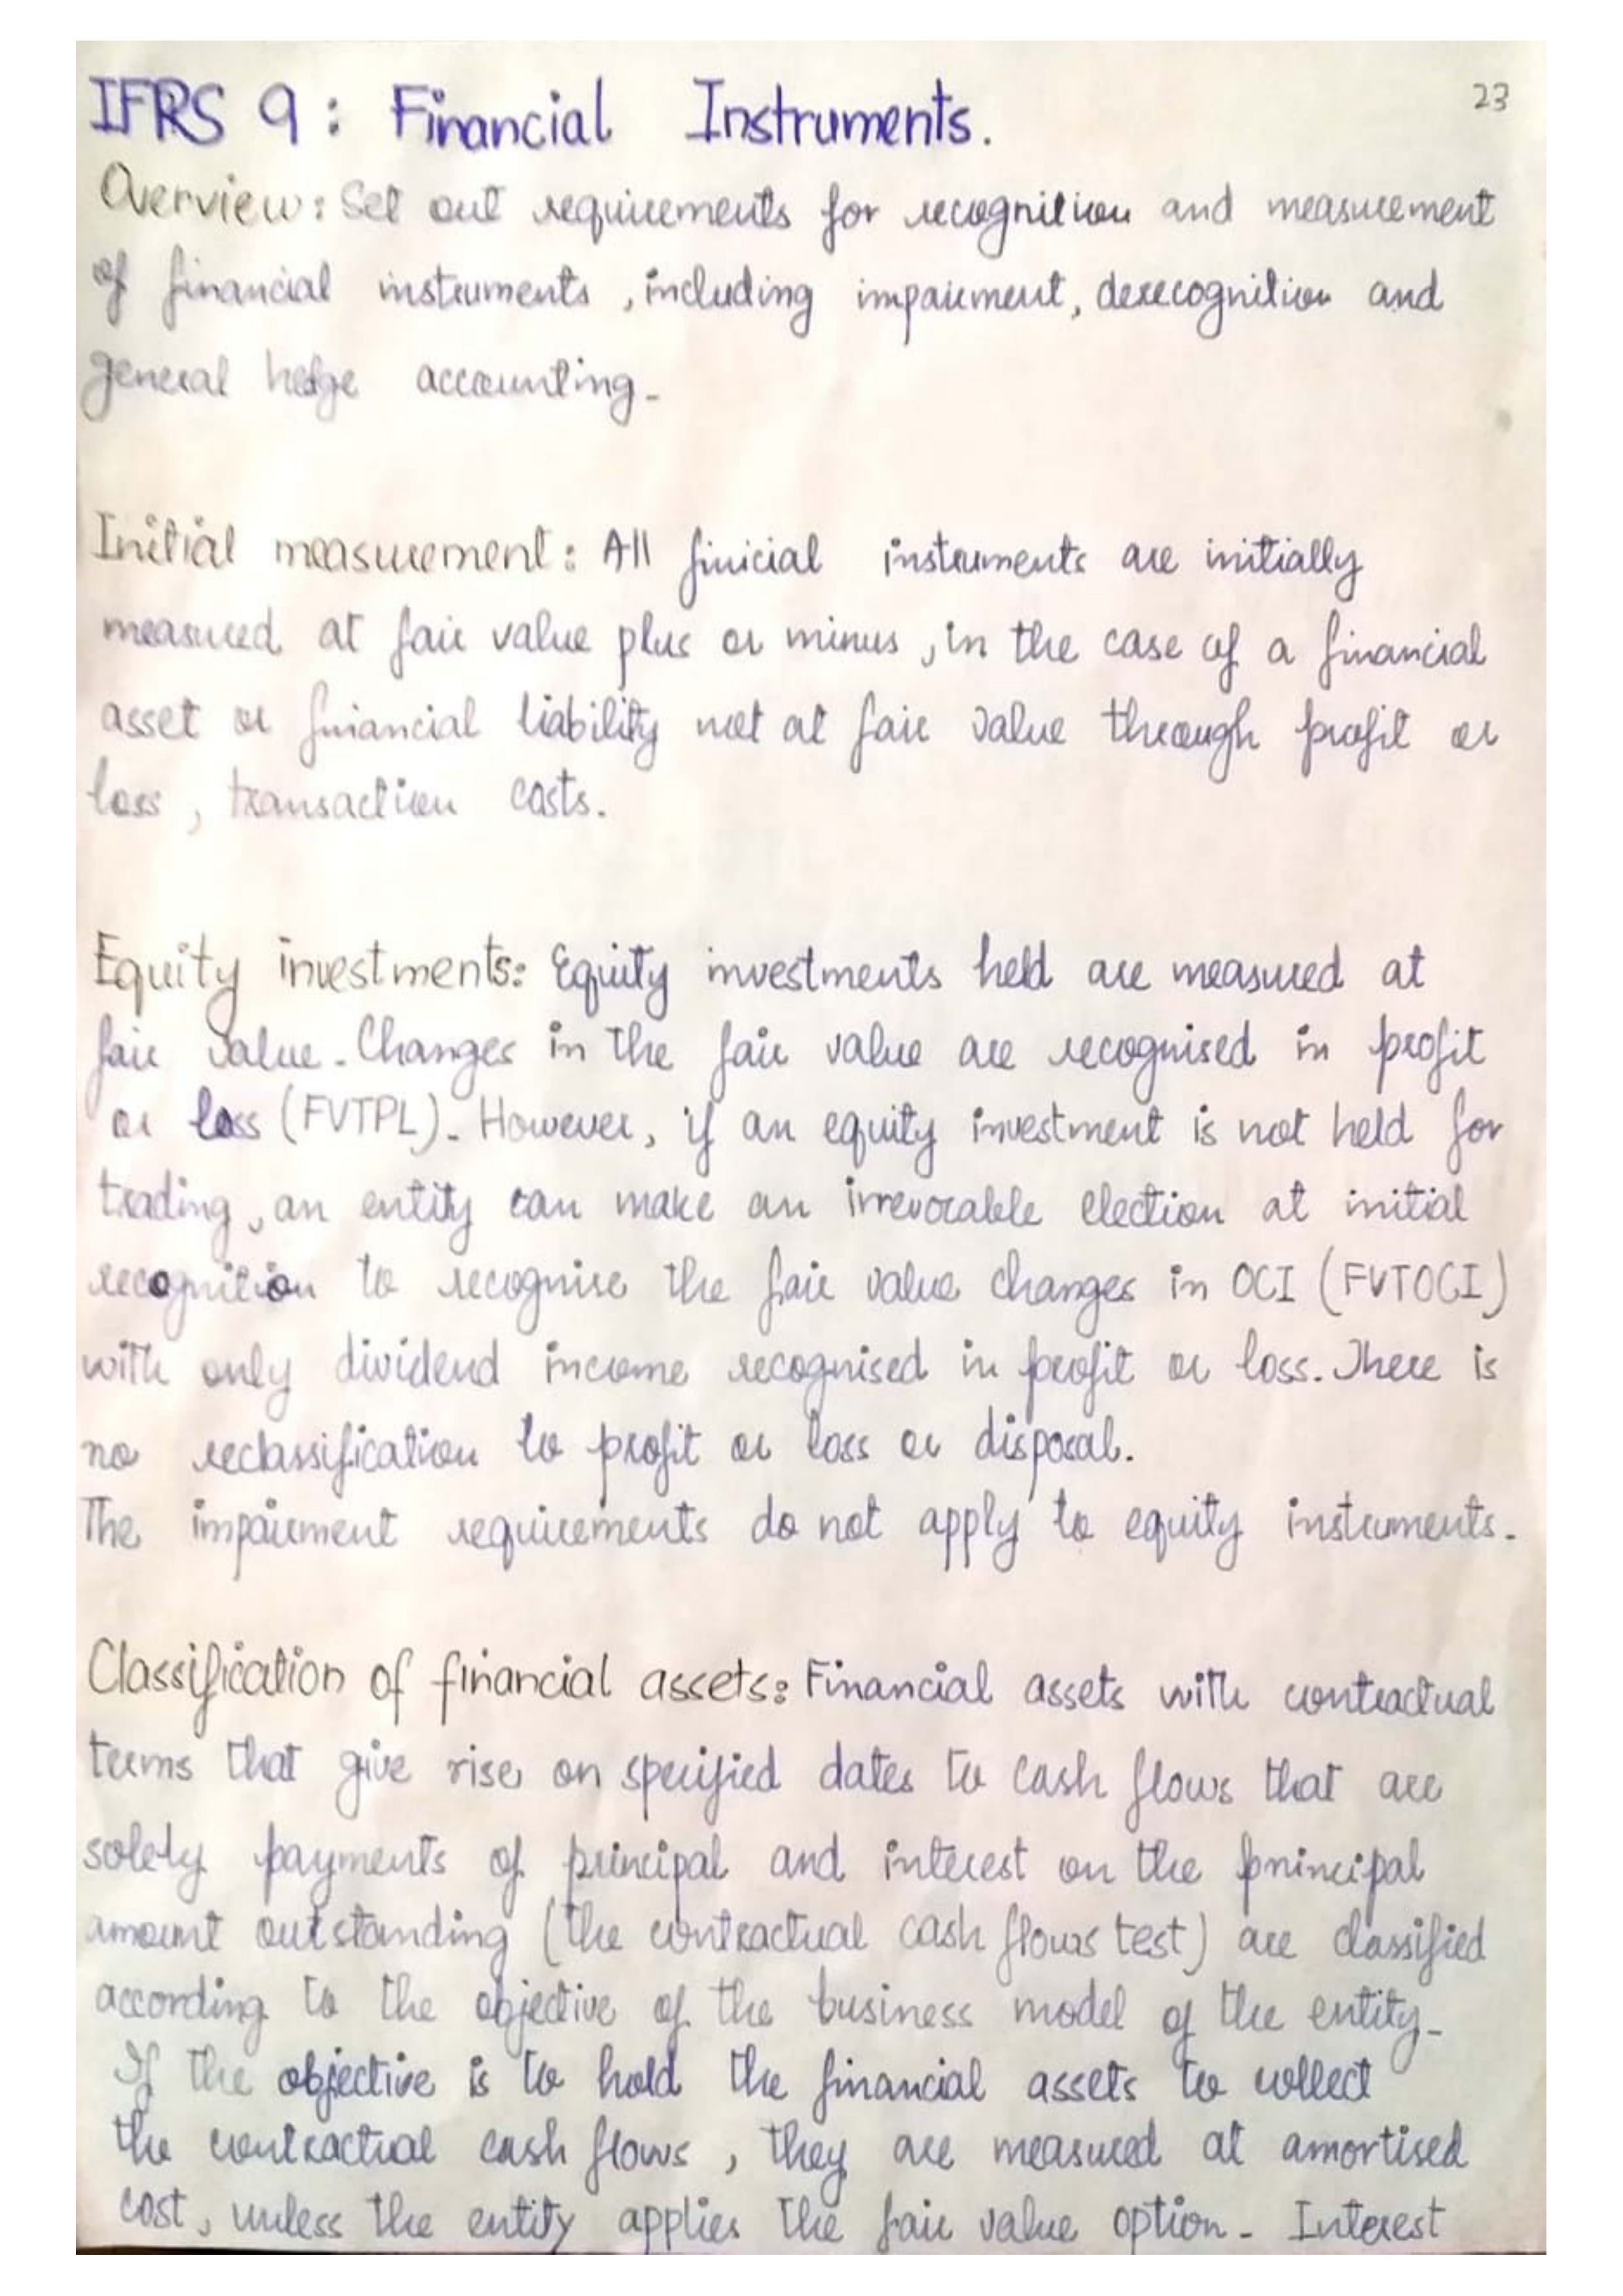 IFRS 9: Financial Instruments.
23
Overview: Set out requirements for recognition and measurement
of financial instruments, including impairment, derecognition and
general hedge accounting.
Initial measurement: All finicial instruments are initially
measured at fair value plus or minus, in the case of a financial
asset or financial liability not at fair value through profit or
loss, transaction costs.
Equity investments: Equity investments held are measured at
fair value. Changes in the fair value are recognised in profit
or loss (FVTPL). However, if an equity investment is not held for
trading, an entity can make an irrevocable election at initial
recognition to recognise the fair value changes in OCI (FVTOCI)
with only dividend income recognised in profit or loss. There is
no reclassification to profit or loss or disposal.
The impairment requirements do not apply to equity instruments.
Classification of financial assets: Financial assets with contractual
terms that give rise on specified dates to cash flows that are
solely payments of principal and interest on the principal
amount outstanding (the contractual cash flows test) are classified
according to the objective of the business model of the entity.
If the objective is to hold the financial assets to collect
the contractual cash flows, they are measured at amortised
cost, unless the entity applies the fair value option. Interest